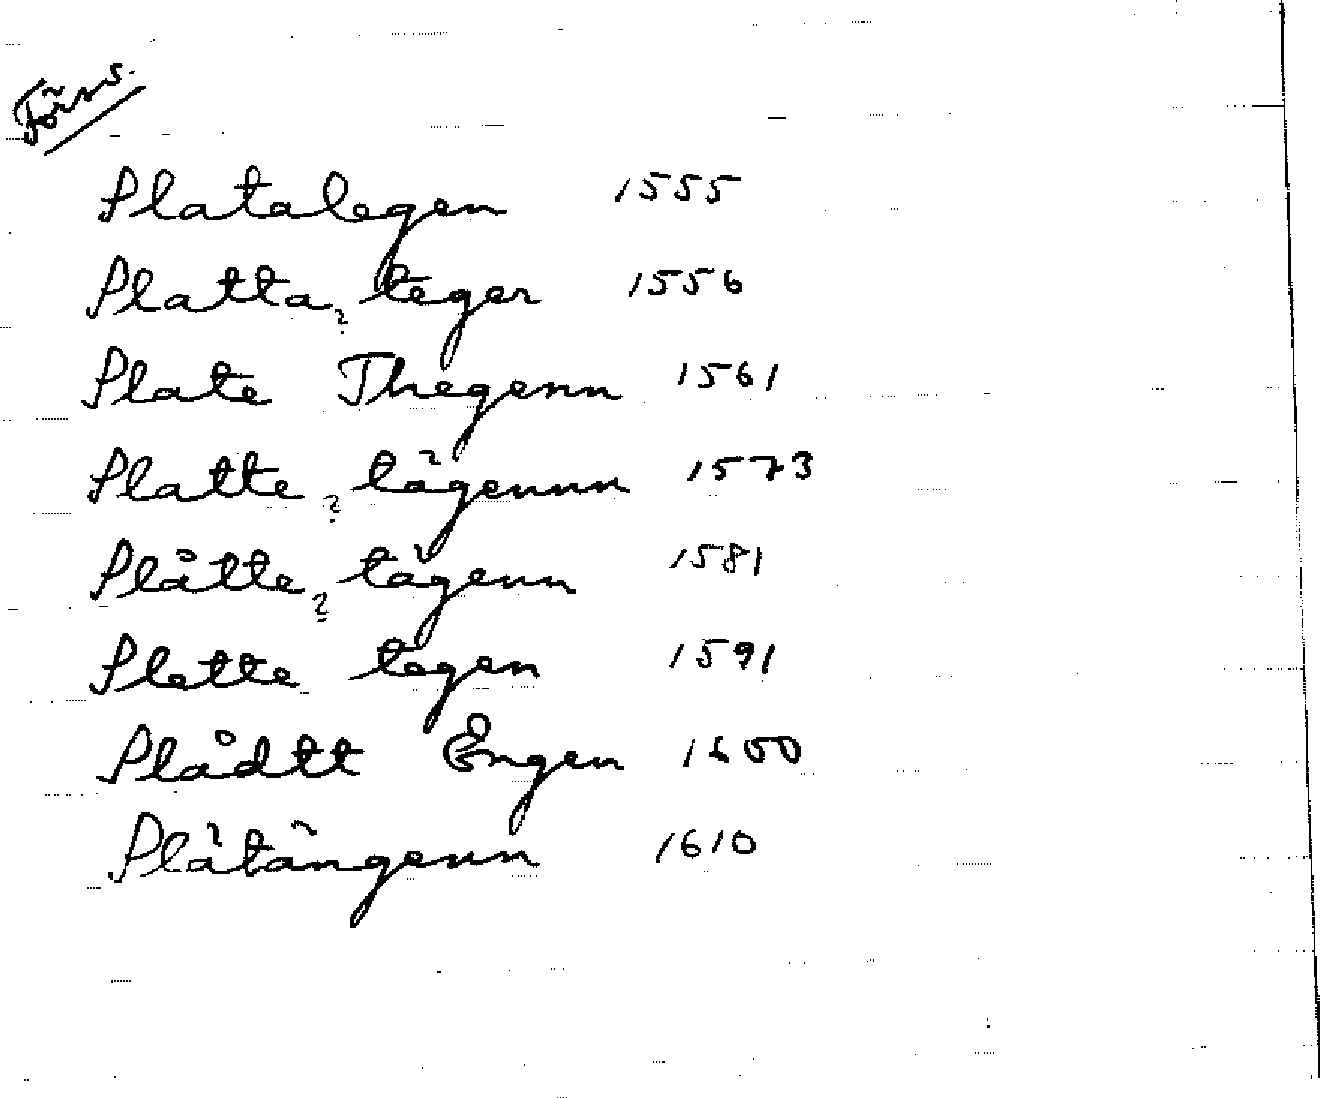 Försv.
Platalegen 1555
Platta, teger 1556
?
Plate Thegenn 1561
Platte, tägennn 1573
?
Plåtte, tägenn 1581
?
Plette tegen 1591
Plådtt Engen 1600
Plätängenn 1610